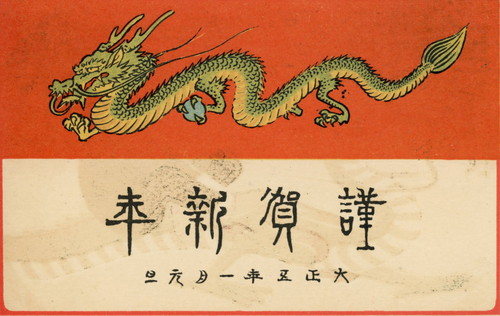 謹賀新年
大正五年一月元旦